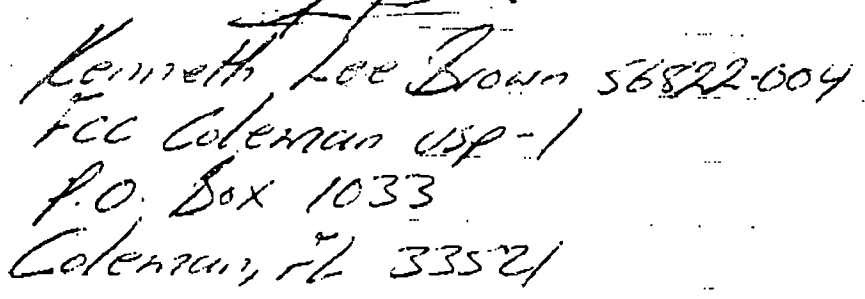 Kenneth Lee Brown 56822-004
FCC Coleman USP-1
P.O. Box 1033
Coleman, FL 33521